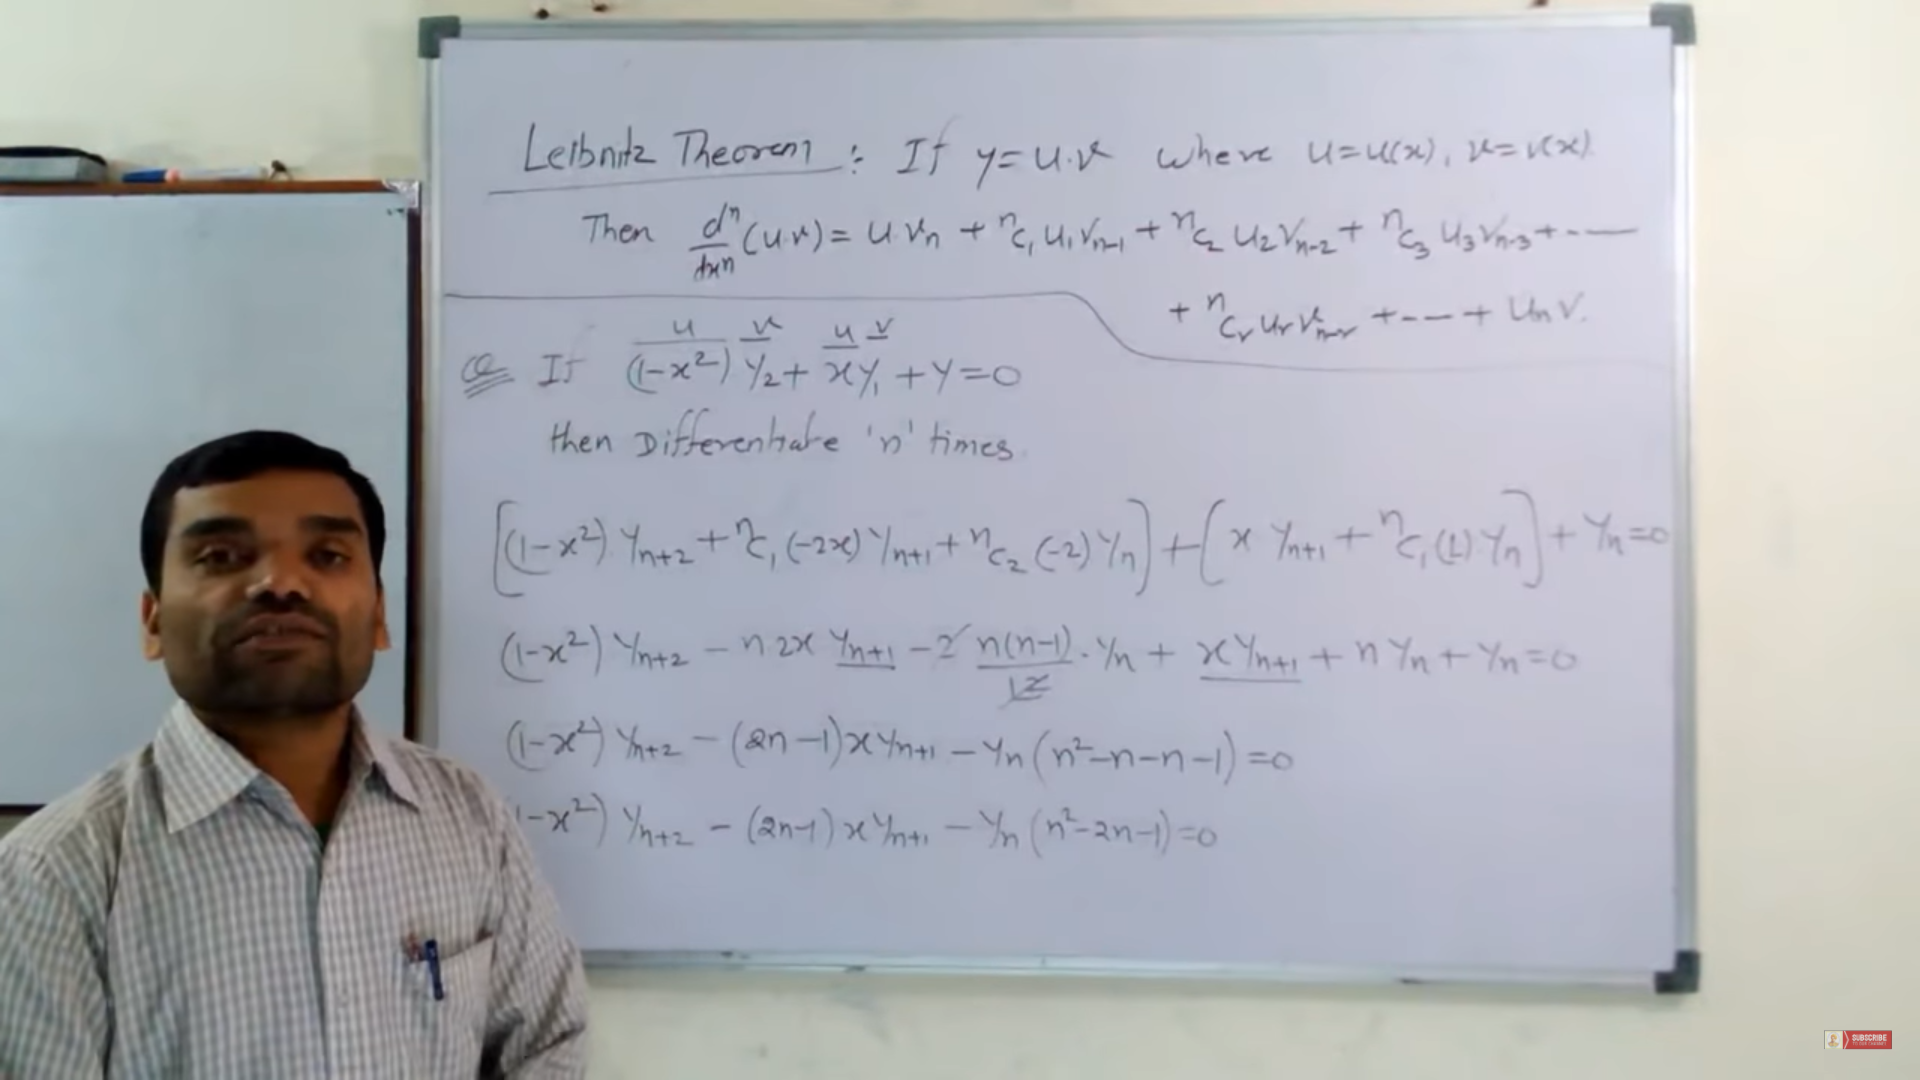 Leibnitz Theorem : If y = u·v where u = u(x), v = v(x).
Then dⁿ/dxⁿ (u·v) = u vₙ + ⁿC₁ u₁ vₙ₋₁ + ⁿC₂ u₂ vₙ₋₂ + ⁿC₃ u₃ vₙ₋₃ + -----
+ ⁿCᵣ uᵣ vₙ₋ᵣ + --- + uₙ v.
u v u v
Q If (1-x²) y₂ + x y₁ + y = 0
then Differentiate 'n' times.
[(1-x²) yₙ₊₂ + ⁿC₁ (-2x) yₙ₊₁ + ⁿC₂ (-2) yₙ] + [x yₙ₊₁ + ⁿC₁ (1) yₙ] + yₙ = 0
(1-x²) yₙ₊₂ - n 2x yₙ₊₁ - 2 n(n-1)/12 · yₙ + x yₙ₊₁ + n yₙ + yₙ = 0
(1-x²) yₙ₊₂ - (2n-1) x yₙ₊₁ - yₙ (n²-n-n-1) = 0
1-x²) yₙ₊₂ - (2n-1) x yₙ₊₁ - yₙ (n²-2n-1) = 0
SUBSCRIBE